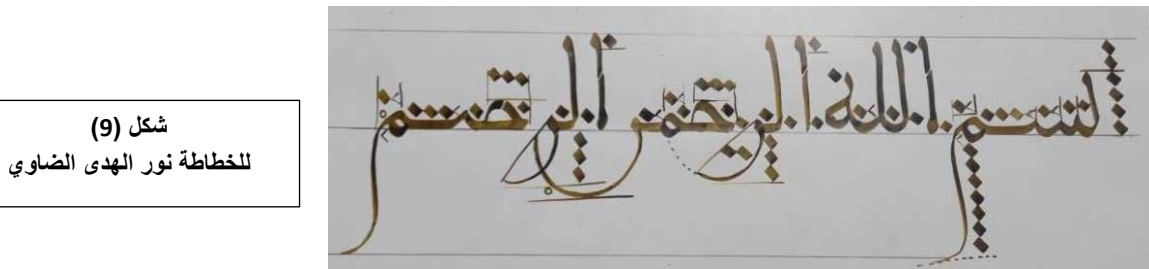 بسم الله الرحمن الرحيم
شكل (9)
للخطاطة نور الهدى الضاوي